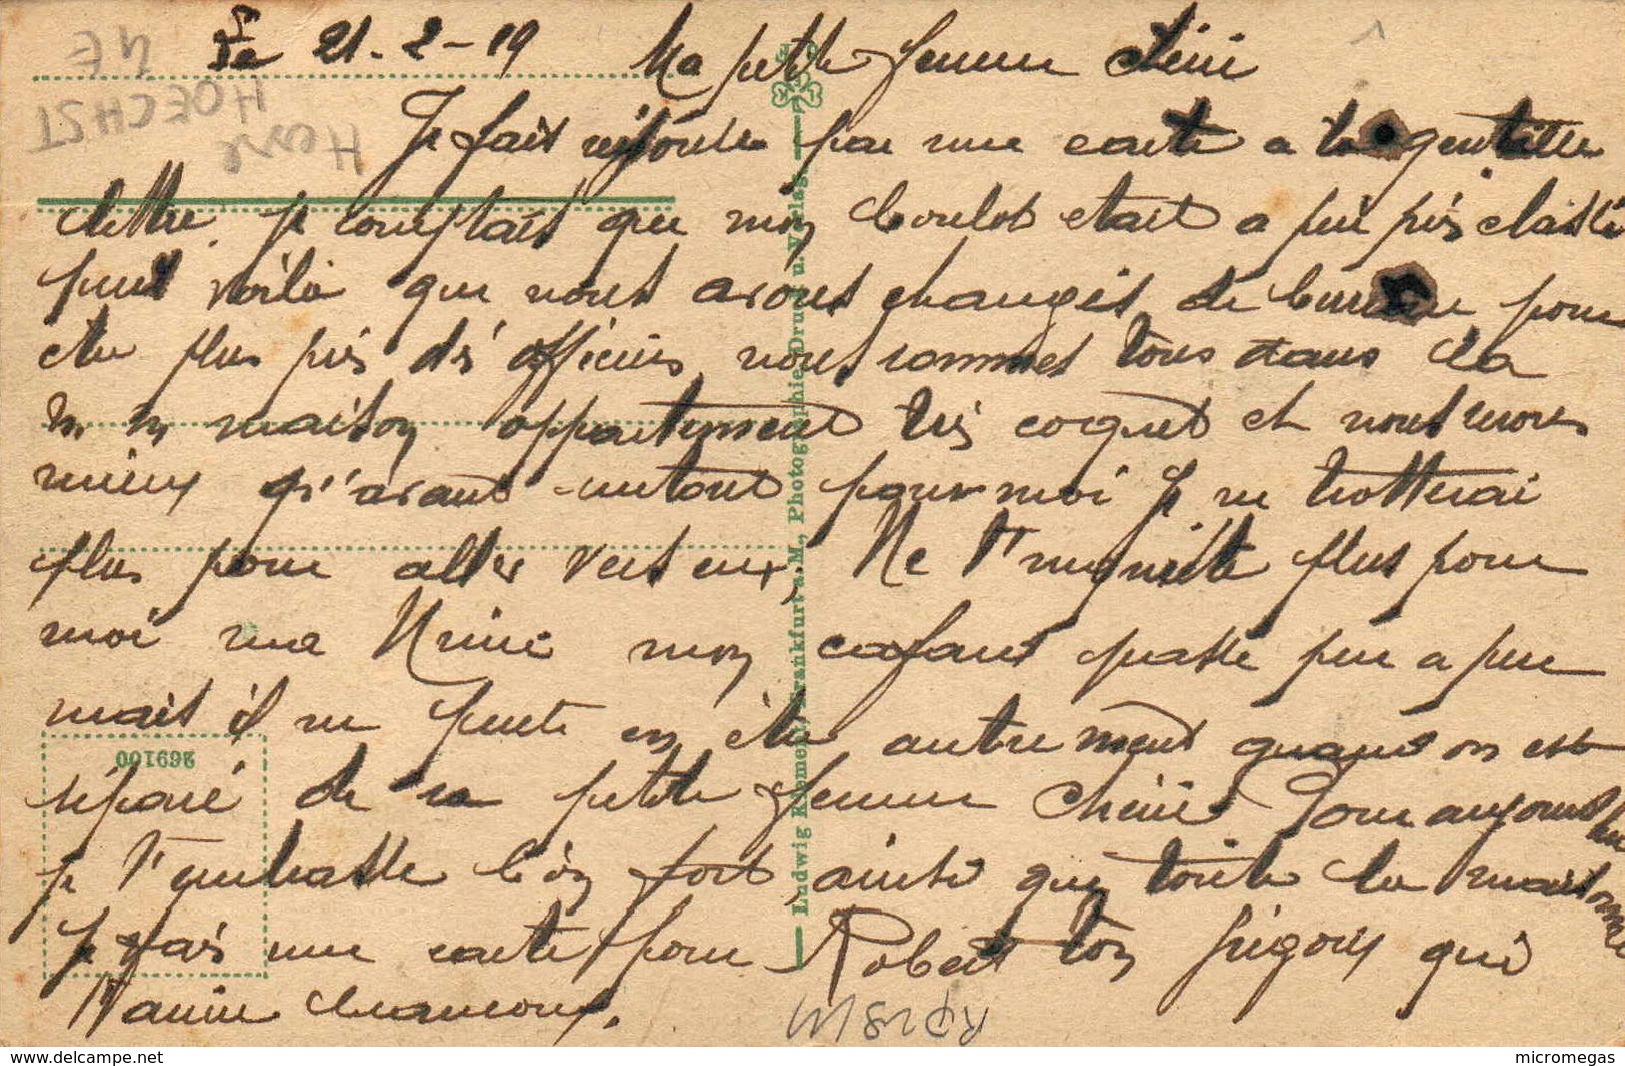 Le 21-2-19 Ma petite femme chérie
Je fait réponse par une carte a ta gentille
lettre. je comptais que mon boulot etait a peu près classé
puis voilà que nous avons changés de bureau pour
etre plus près des officiers, nous sommes tous dans la
m m maison appartement très coquet et nous serons
mieux qu'avant surtout pour moi Je ne trotterai
plus pour aller vers eux, Ne t'inquiète plus pour
moi ma Ninie mon cafard passe peu a peu
mais il ne peute en être autrement quand on est
séparé de sa petite femme chérie Pour aujourd'hui
je t'embrasse bien fort, ainsi que toute la maisonnée
Je vais une carte pour Robert ton frigoris qui
t'aime beaucoup.
4E
HOECHST
Hesse
269100
Ludwig Klement, Frankfurt a. M., Photographie, Druck u. Verlag.
www.delcampe.net
micromegas